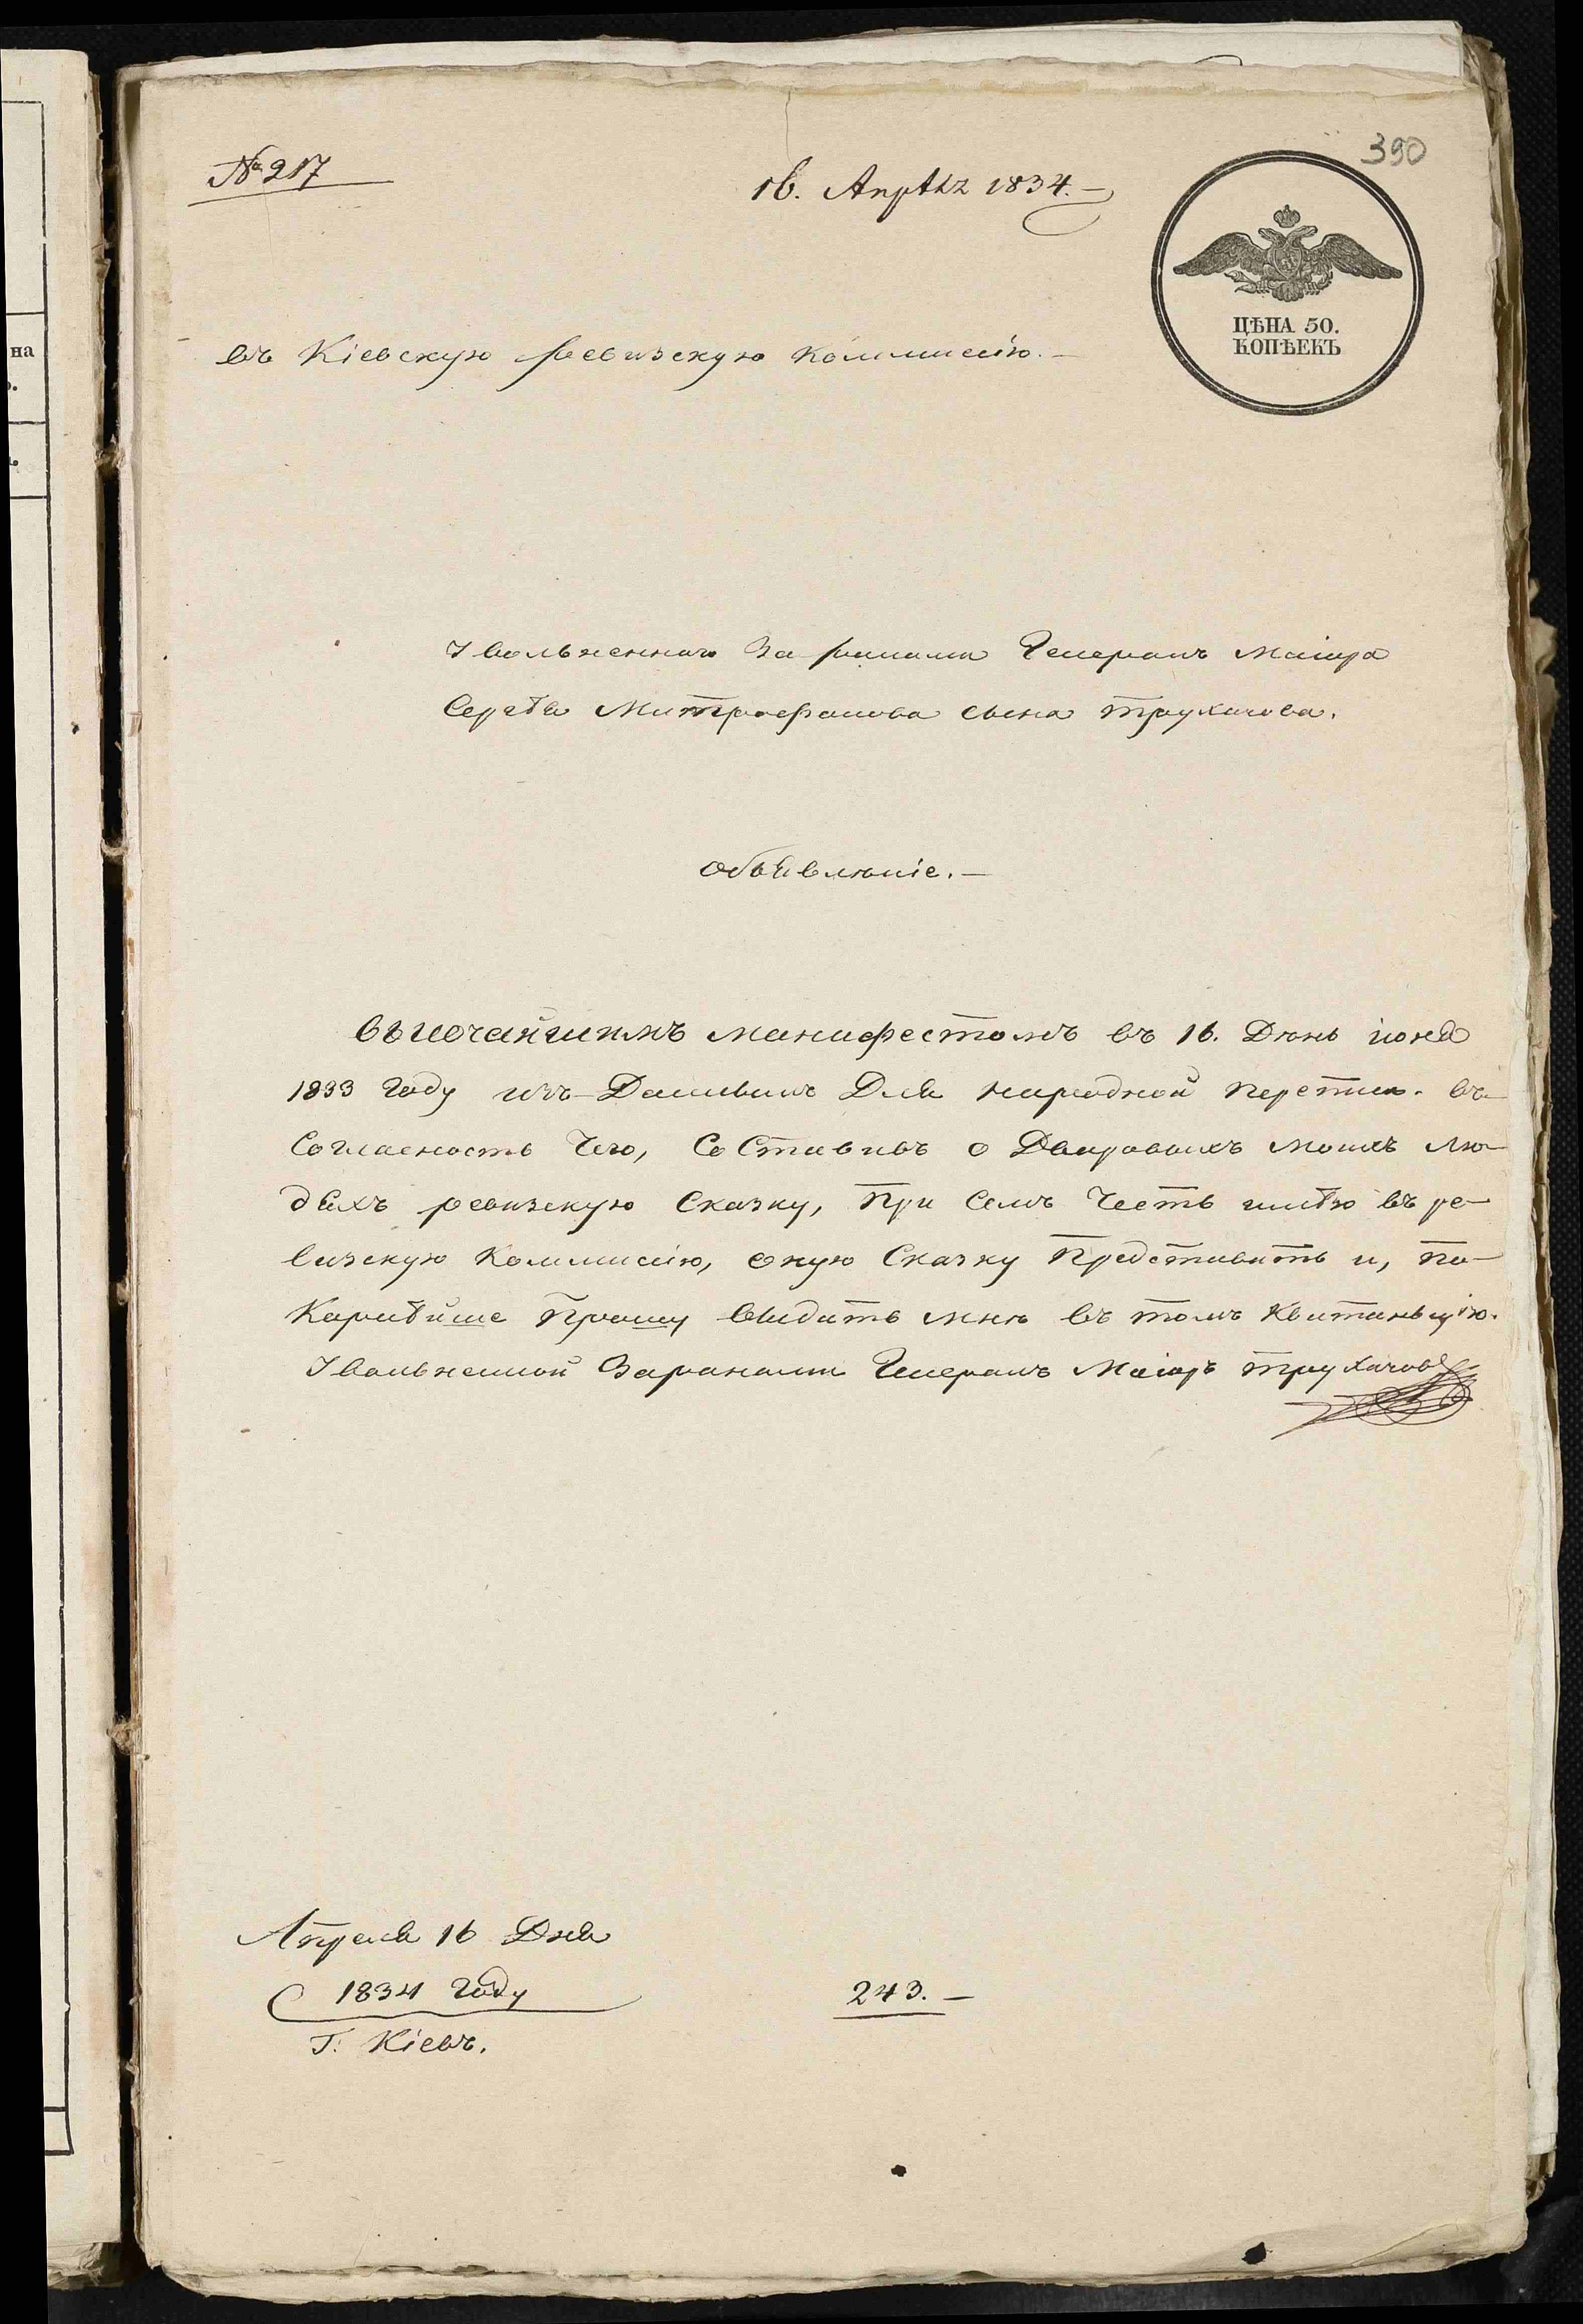 390
№ 217
16. Апрѣль 1834.
ЦѢНА 50.
КОПѢЕКЪ
въ Кіевскую ревизскую коммисію.
Увольненнаго За ранами Генералъ Маіора
Сергѣя Митрофанова сына Трухачова.
объявленіе.
высочайшимъ манифестомъ въ 16. День іюня
1833 Году изъ-Даннымъ Для народной переписи. въ
Согласность Чего, Составивъ о Дворовыхъ моихъ лю-
дяхъ ревизскую Сказку, При Семъ Честь имѣю въ ре-
визскую Коммисію, оную Сказку Представить и, по-
Корнѣйше Прошу выдать мнѣ въ томъ Квитанцію.
Увольненной Заранами Генералъ Маіоръ Трухачовъ
Апреля 16 Дня
1834 Году
Г. Кіевъ.
243.
на